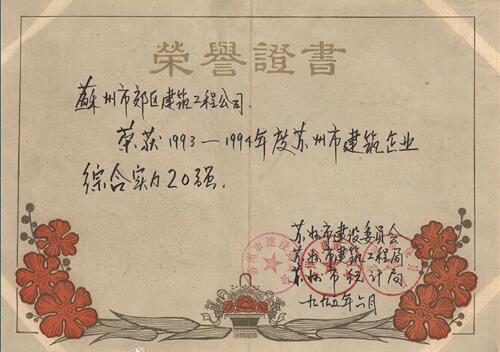 榮譽證書
蘇州市郊区建筑工程公司.
荣获1993—1994年度苏州市建筑企业
综合实力20强.
苏州市建设委员会
苏州市建筑工程局
苏州市统计局
一九九五年六月